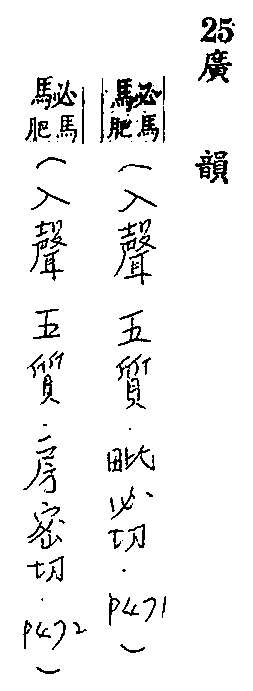 25廣韻
駜馬肥(入聲 五質．毗必切．P471)
駜馬肥(入聲 五質．房密切．P472)